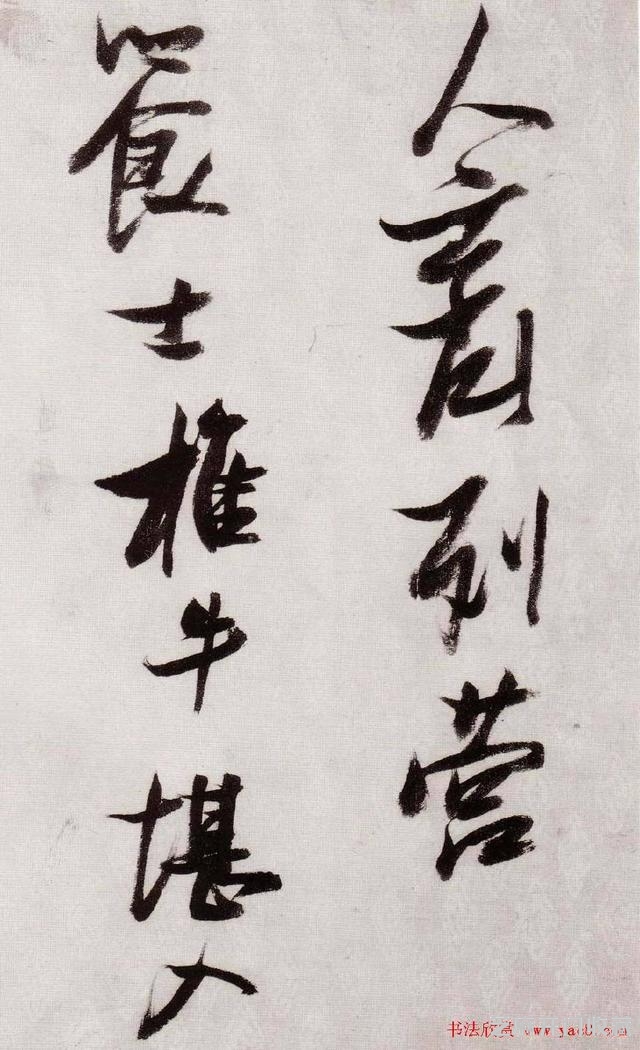 人列营
饗士椎牛堪入
书法欣赏 www.yac8.com